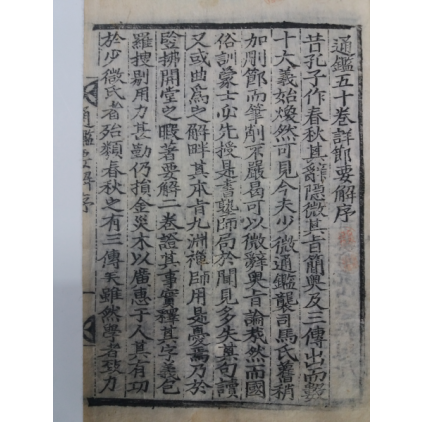 通鑑五十卷詳節要解序
昔孔子作春秋其辭隱微其旨簡奧及三傳出而數
十大義始煥然可見今夫少微通鑑襲司馬氏舊稍
加刪節而筆削不嚴曷可以微辭奧旨論哉然而國
俗訓蒙士必先授是書塾師局於聞見多失其句讀
又或曲爲之解畔其本肯九洲禪師用是憂焉乃於
竪拂開堂之暇著要解二卷證其事實釋其字義包
羅搜剔用力甚勤仍損金災木以廣惠于人其有功
於少微氏者殆類春秋之有三傳矣雖然學者致力
通鑑要解序